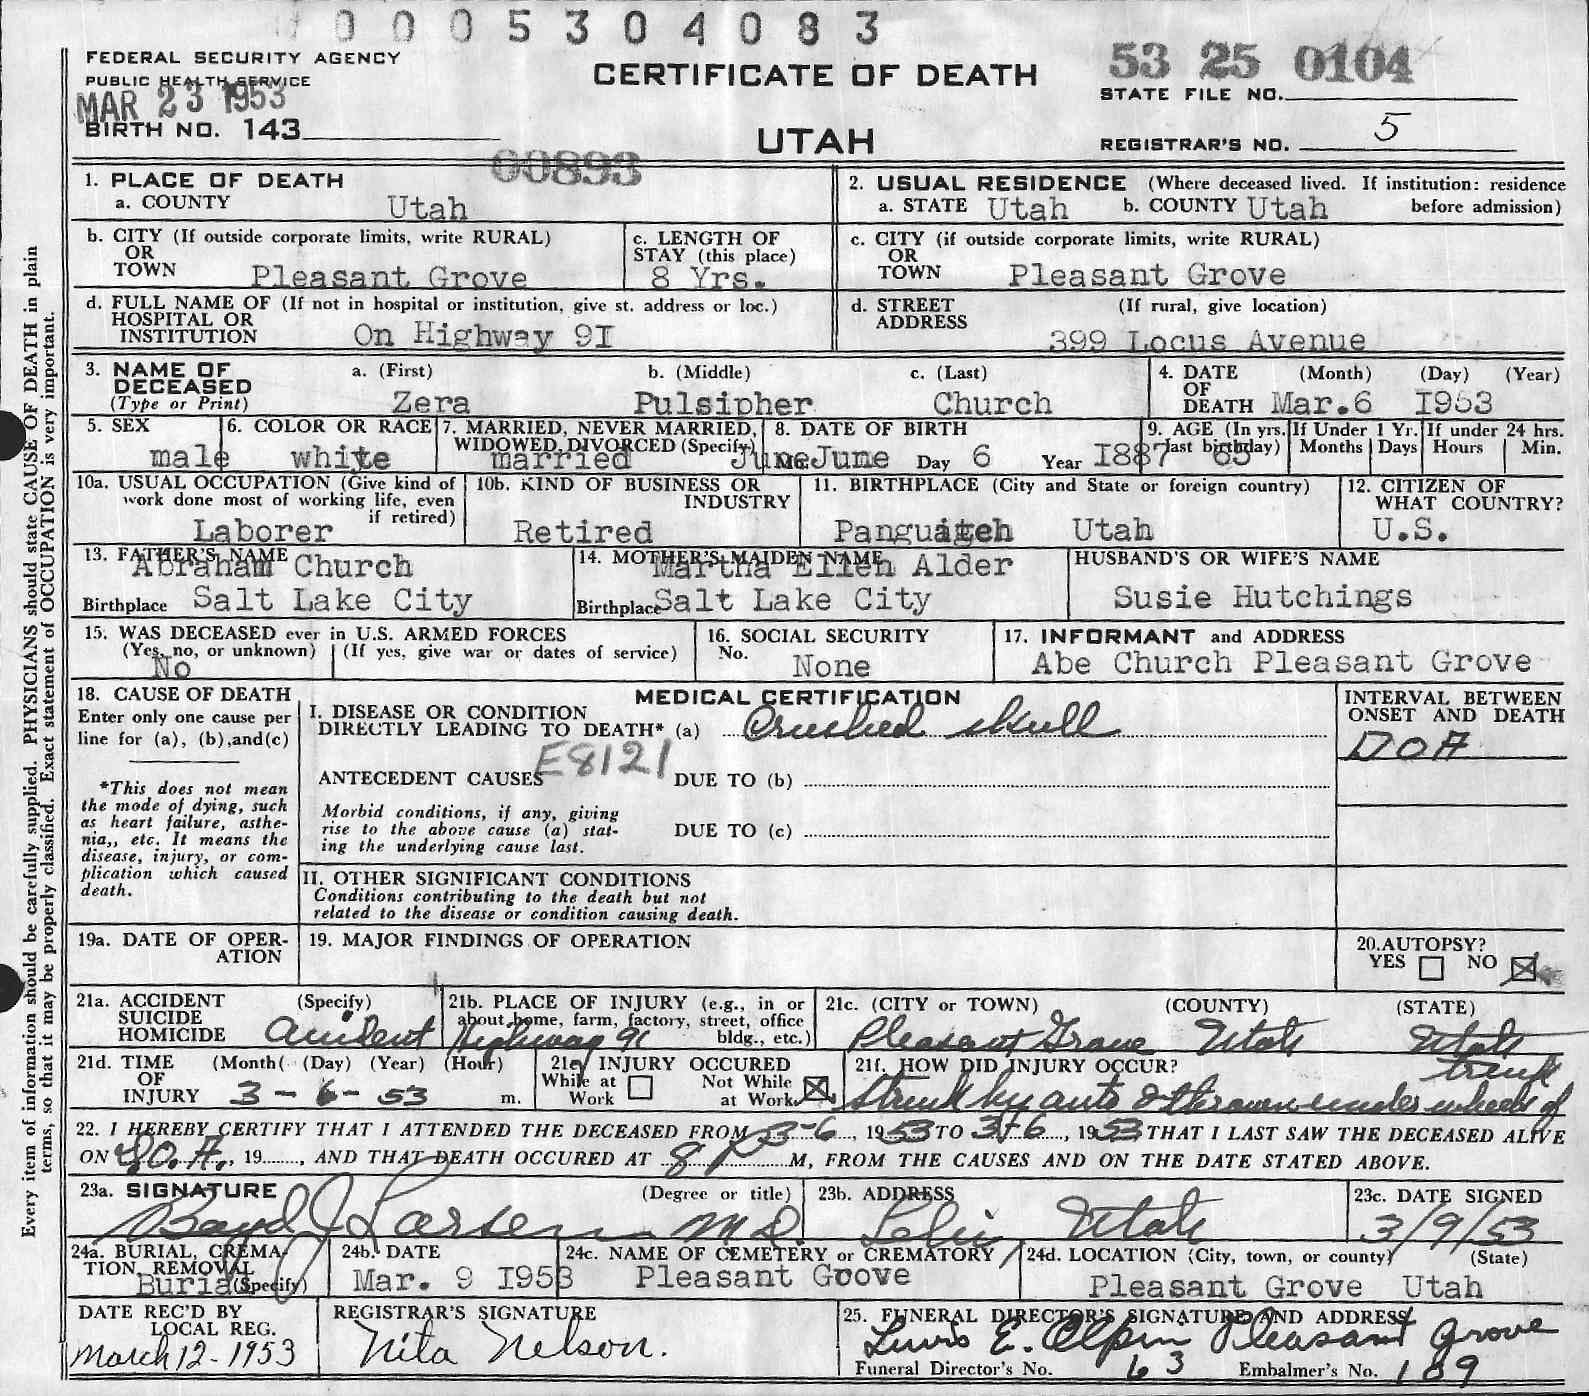 0005304083
FEDERAL SECURITY AGENCY
PUBLIC HEALTH SERVICE
MAR 23 1953
BIRTH NO. 143
CERTIFICATE OF DEATH
UTAH
53 25 0104
STATE FILE NO.
REGISTRAR'S NO. 5
00893
1. PLACE OF DEATH
a. COUNTY Utah
2. USUAL RESIDENCE (Where deceased lived. If institution: residence before admission)
a. STATE Utah b. COUNTY Utah
b. CITY (If outside corporate limits, write RURAL)
OR
TOWN Pleasant Grove
c. LENGTH OF
STAY (this place)
8 Yrs.
c. CITY (if outside corporate limits, write RURAL)
OR
TOWN Pleasant Grove
d. FULL NAME OF (If not in hospital or institution, give st. address or loc.)
HOSPITAL OR
INSTITUTION On Highway 9I
d. STREET (If rural, give location)
ADDRESS
399 Locus Avenue
3. NAME OF
DECEASED
(Type or Print)
a. (First) b. (Middle) c. (Last)
Zera Pulsipher Church
4. DATE (Month) (Day) (Year)
OF
DEATH Mar.6 I953
5. SEX
male
6. COLOR OR RACE
white
7. MARRIED, NEVER MARRIED,
WIDOWED, DIVORCED (Specify)
married
8. DATE OF BIRTH
June June Day 6 Year I887
9. AGE (In yrs. last birthday) 65
If Under 1 Yr. If under 24 hrs.
Months Days Hours Min.
10a. USUAL OCCUPATION (Give kind of
work done most of working life, even
if retired)
Laborer
10b. KIND OF BUSINESS OR
INDUSTRY
Retired
11. BIRTHPLACE (City and State or foreign country)
Utah
12. CITIZEN OF
WHAT COUNTRY?
U.S.
13. FATHER'S NAME
Abraham Church
Birthplace Salt Lake City
14. MOTHER'S MAIDEN NAME
Martha Ellen Alder
Birthplace Salt Lake City
HUSBAND'S OR WIFE'S NAME
Susie Hutchings
15. WAS DECEASED ever in U.S. ARMED FORCES
(Yes, no, or unknown) (If yes, give war or dates of service)
No
16. SOCIAL SECURITY
No.
None
17. INFORMANT and ADDRESS
Abe Church Pleasant Grove
18. CAUSE OF DEATH
Enter only one cause per
line for (a), (b),and(c)
*This does not mean
the mode of dying, such
as heart failure, asthe-
nia,, etc. It means the
disease, injury, or com-
plication which caused
death.
MEDICAL CERTIFICATION
I. DISEASE OR CONDITION
DIRECTLY LEADING TO DEATH* (a) Crushed skull
E8121
ANTECEDENT CAUSES DUE TO (b)
Morbid conditions, if any, giving
rise to the above cause (a) stat-
ing the underlying cause last.
DUE TO (c)
INTERVAL BETWEEN
ONSET AND DEATH
DOA
II. OTHER SIGNIFICANT CONDITIONS
Conditions contributing to the death but not
related to the disease or condition causing death.
19a. DATE OF OPER-
ATION
19. MAJOR FINDINGS OF OPERATION
20.AUTOPSY?
YES NO
21a. ACCIDENT (Specify)
SUICIDE
HOMICIDE Accident
21b. PLACE OF INJURY (e.g., in or
about home, farm, factory, street, office
bldg., etc.)
Highway 91
21c. (CITY or TOWN) (COUNTY) (STATE)
Pleasant Grove Utah Utah
21d. TIME (Month( (Day) (Year) (Hour)
OF
INJURY 3-6-53 m.
21e. INJURY OCCURED
While at Work Not While at Work
21f. HOW DID INJURY OCCUR?
Struck by auto & thrown under wheels of truck
22. I HEREBY CERTIFY THAT I ATTENDED THE DECEASED FROM 3-6, 1953 TO 3-6, 1953 THAT I LAST SAW THE DECEASED ALIVE
ON D.O.A., 19......, AND THAT DEATH OCCURED AT 8 P M, FROM THE CAUSES AND ON THE DATE STATED ABOVE.
23a. SIGNATURE (Degree or title)
Boyd J Larsen M.D.
23b. ADDRESS
Lehi Utah
23c. DATE SIGNED
3/9/53
24a. BURIAL, CREMA-
TION, REMOVAL
(Specify)
Burial
24b. DATE
Mar. 9 I953
24c. NAME OF CEMETERY or CREMATORY
Pleasant Grove
24d. LOCATION (City, town, or county) (State)
Pleasant Grove Utah
DATE REC'D BY
LOCAL REG.
March 12-1953
REGISTRAR'S SIGNATURE
Nita Nelson.
25. FUNERAL DIRECTOR'S SIGNATURE AND ADDRESS
E. Olpin Pleasant Grove
Funeral Director's No. 63 Embalmer's No. 189
Every item of information should be carefully supplied. PHYSICIANS should state CAUSE OF DEATH in plain
terms, so that it may be properly classified. Exact statement of OCCUPATION is very important.